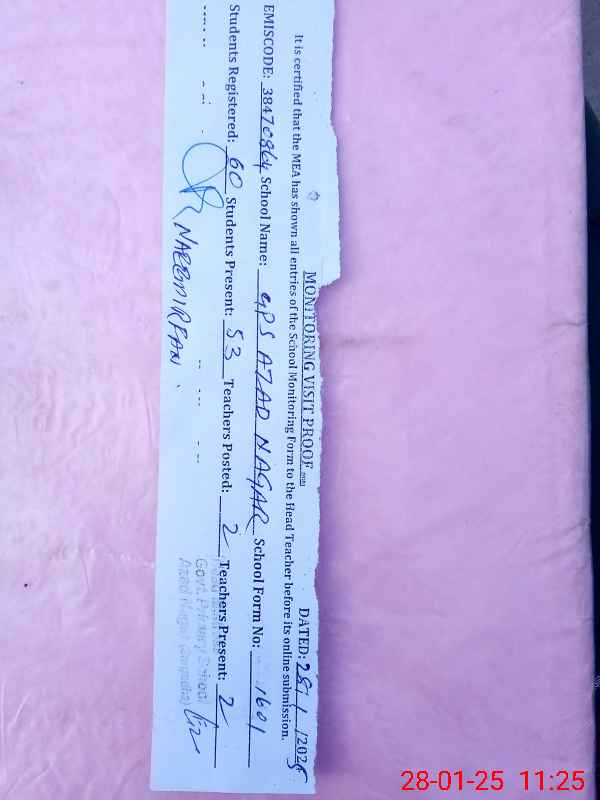 MONITORING VISIT PROOF
DATED: 28/1/2025
It is certified that the MEA has shown all entries of the School Monitoring Form to the Head Teacher before its online submission.
EMISCODE: 38470864 School Name: GPS AZAD NAGAR School Form No: 1601
Students Registered: 60 Students Present: 53 Teachers Posted: 2 Teachers Present: 2
NAEEM IRFAN
Govt. Primary School
Azad Nagar
28-01-25 11:25